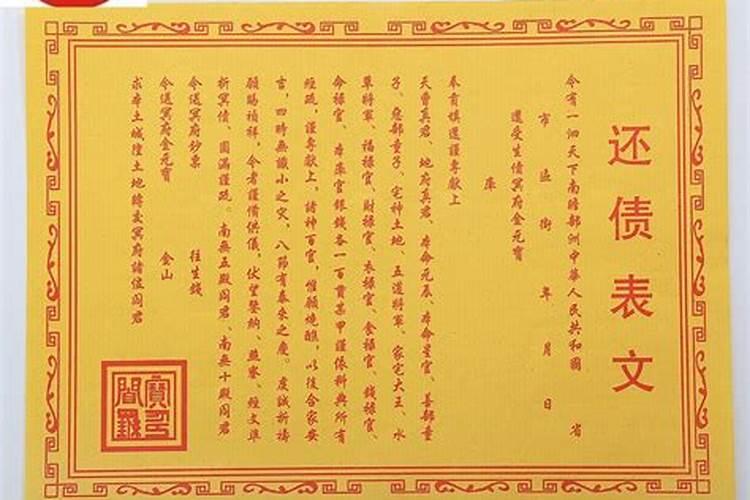 还债表文
今有一泗天下南瞻部洲中華人民共和國 省
市 區 街 年 月 日
還受生債冥府金元寶
庫
奉育填還謹專獻上
天曹真君、地府真君、本命元辰、本命星官、善部童
子、惡部童子、宅神土地、五道將軍、家宅大王、水
草將軍、福禄官、財禄官、衣禄官、食禄官、錢禄官、
命禄官、本庫官銀錢各一百貫某甲謹依科典所有
經疏，謹專獻上，諸神百官，惟願燒醮，以後合家安
吉，四時無讖小之灾，八節有泰來之慶。虔誠祈禱
願賜禎祥，令者謹備供儀，伏望鑒納、燕寥、經文準
折冥債、圆滿謹疏。南無五殿阎君、南無十殿阎君
令送冥府鈔票 往生錢
令送冥府金元寶 金山
求本土城隍土地轉交冥府諸位阎君